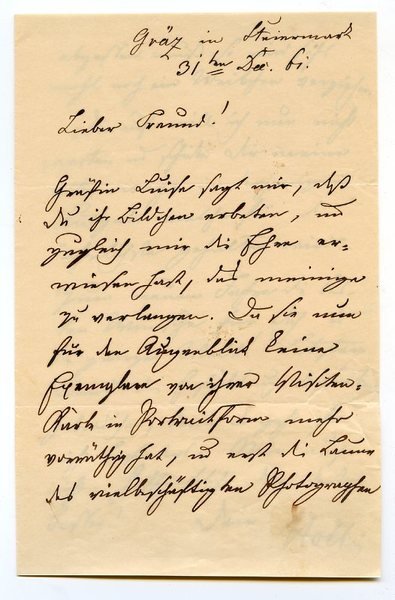 Gräz in Steiermark
31ten Dec. 61.
Lieber Freund!
Gräfin Luise sagt mir, daß
du ihr Bildchen erbeten, und
zugleich mir die Ehre er=
wiesen hast, das meinige
zu verlangen. Da sie nun
für den Augenblick keine
Exemplare von ihrer Visiten=
Karte in Portraitform mehr
vorräthig hat, u erst die Laune
des vielbeschäftigten Photographen